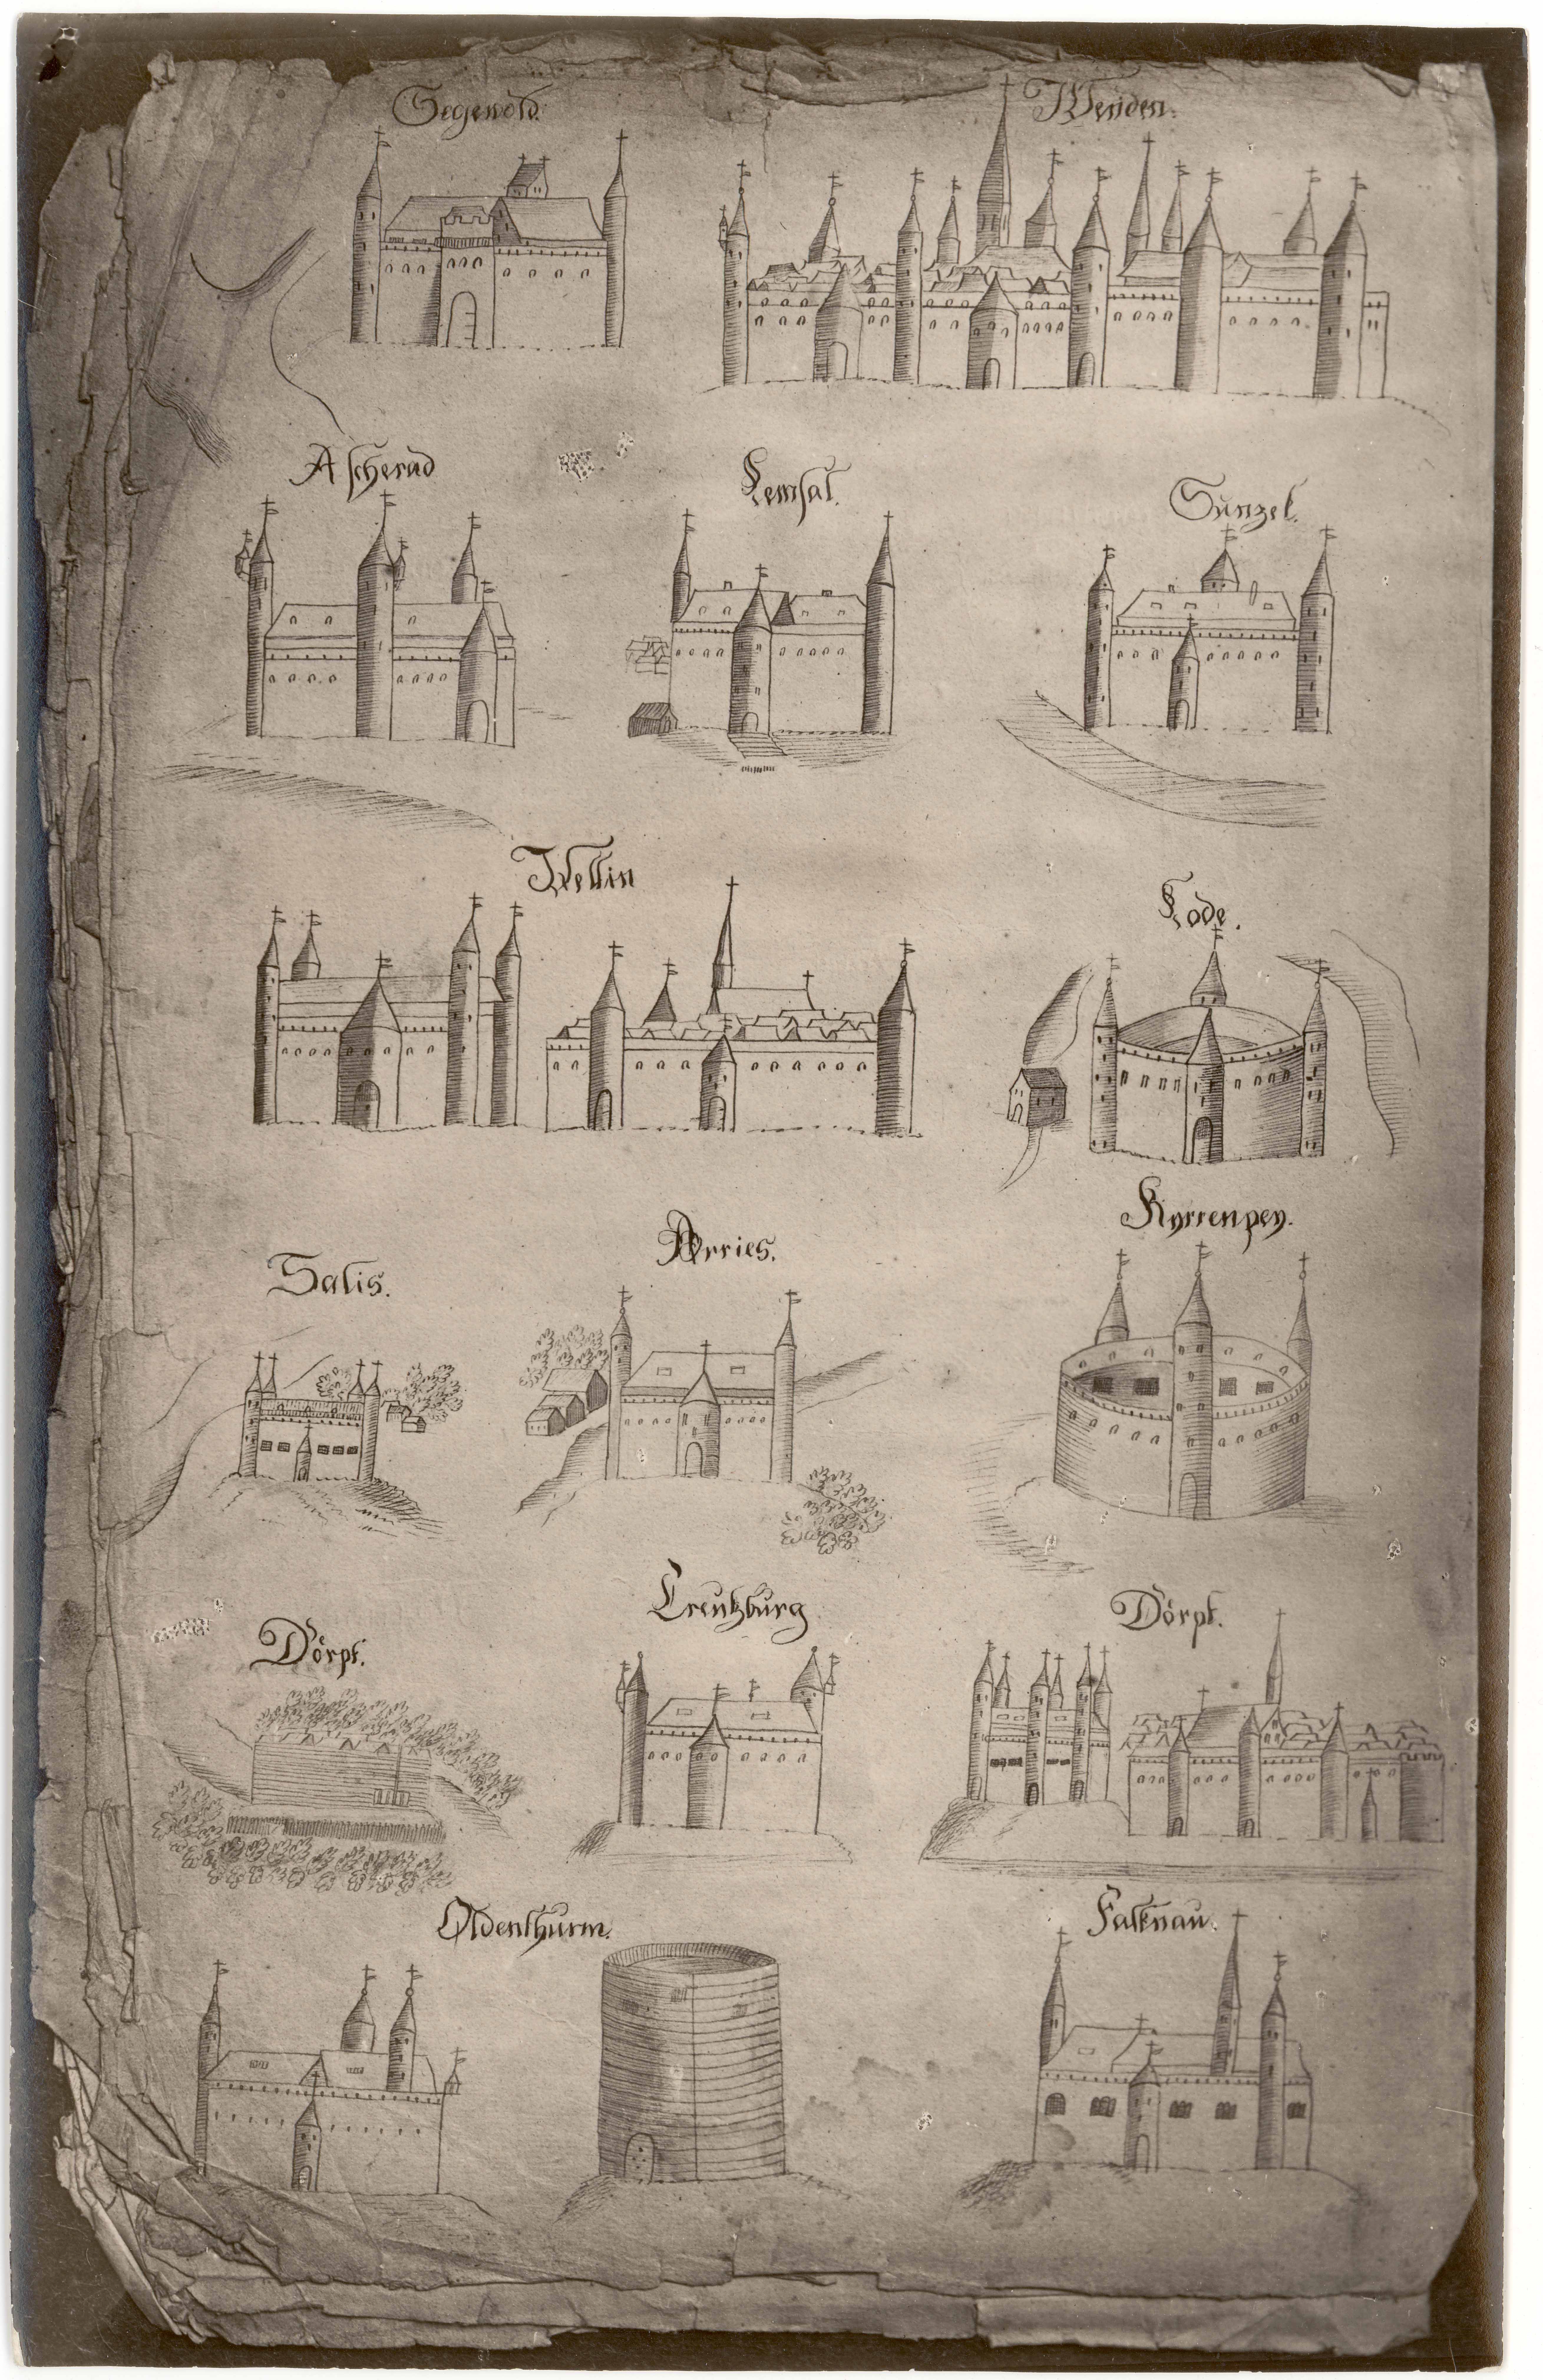 Segewold.
Wenden.
Ascherad
Lemsal.
Sunzel.
Wellin
Lode.
Kyrrenpey.
Arries.
Salis.
Creutzburg
Dörpt.
Dörpt.
Oldenthurm.
Falknau.